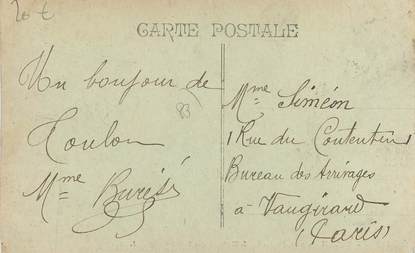 20 €
CARTE POSTALE
Un bonjour de
Toulon
Mme
83
Mme Siméon
1 Rue du Contentin
Bureau des Arrivages
à Vaugirard
(Paris)